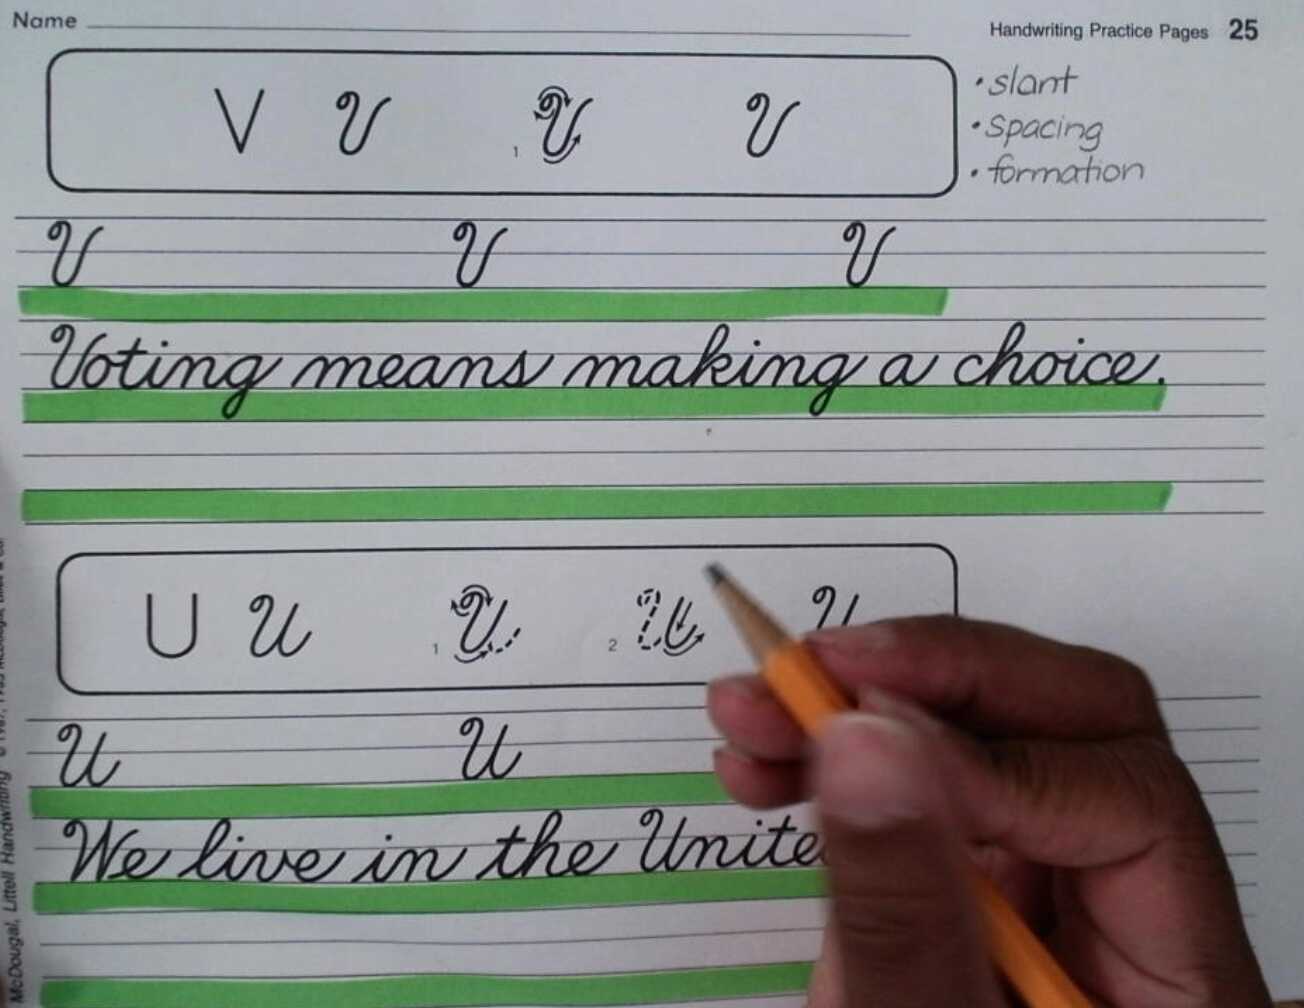 Name
Handwriting Practice Pages 25
• slant
• spacing
• formation
V V 1 V V
V V V
Voting means making a choice.
U U 1 U 2 U U
U U
We live in the Unite
McDougal, Littell Handwriting